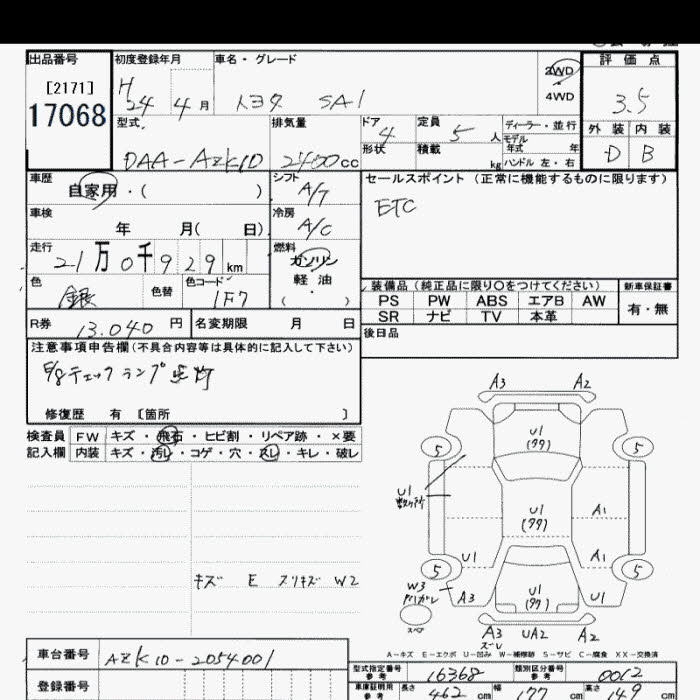 出品番号
[2171]
17068
初度登録年月
H
24 4月
車名・グレード
トヨタ SAI
2WD
4WD
評価点
3.5
外装 内装
D B
型式
DAA-AZK10
排気量
2400cc
ドア 4
形状
定員 5人
積載 kg
ディーラー・並行
モデル
年式 年
ハンドル 左・右
車歴
自家用・( )
シフト
A/T
セールスポイント(正常に機能するものに限ります)
ETC
車検
年 月( 日)
冷房
A/C
走行
21万0千929km
燃料
ガソリン
軽油
( )
色
銀
色替
色コード
1F7
装備品(純正品に限り〇をつけてください)
PS PW ABS エアB AW
SR ナビ TV 本革
新車保証書
有・無
R券
13.040円
名変期限 月 日
後日品
注意事項申告欄(不具合内容等は具体的に記入して下さい)
E/gチェックランプ点灯
修復歴 有 〔箇所 〕
検査員
記入欄
FW キズ・飛石・ヒビ割・リペア跡・×要
内装 キズ・汚レ・コゲ・穴・スレ・キレ・破レ
A3 A2
U1
(クク)
5 5
U1
数ヶ所
U1
(クク)
A1
U1 A1
5 5
W3
A3
U1
(クク)
U1
スペア
A3 UA2 A2
ズレ
キズ E スリキズ W2
A-キズ E-エクボ U-凹み W-補修跡 S-サビ C-腐食 XX-交換済
車台番号
AZK10-2054001
登録番号
型式指定番号
参考
16368
類別区分番号
参考
0012
車庫証明用
参考
長さ 462cm 幅 177cm 高さ 149cm